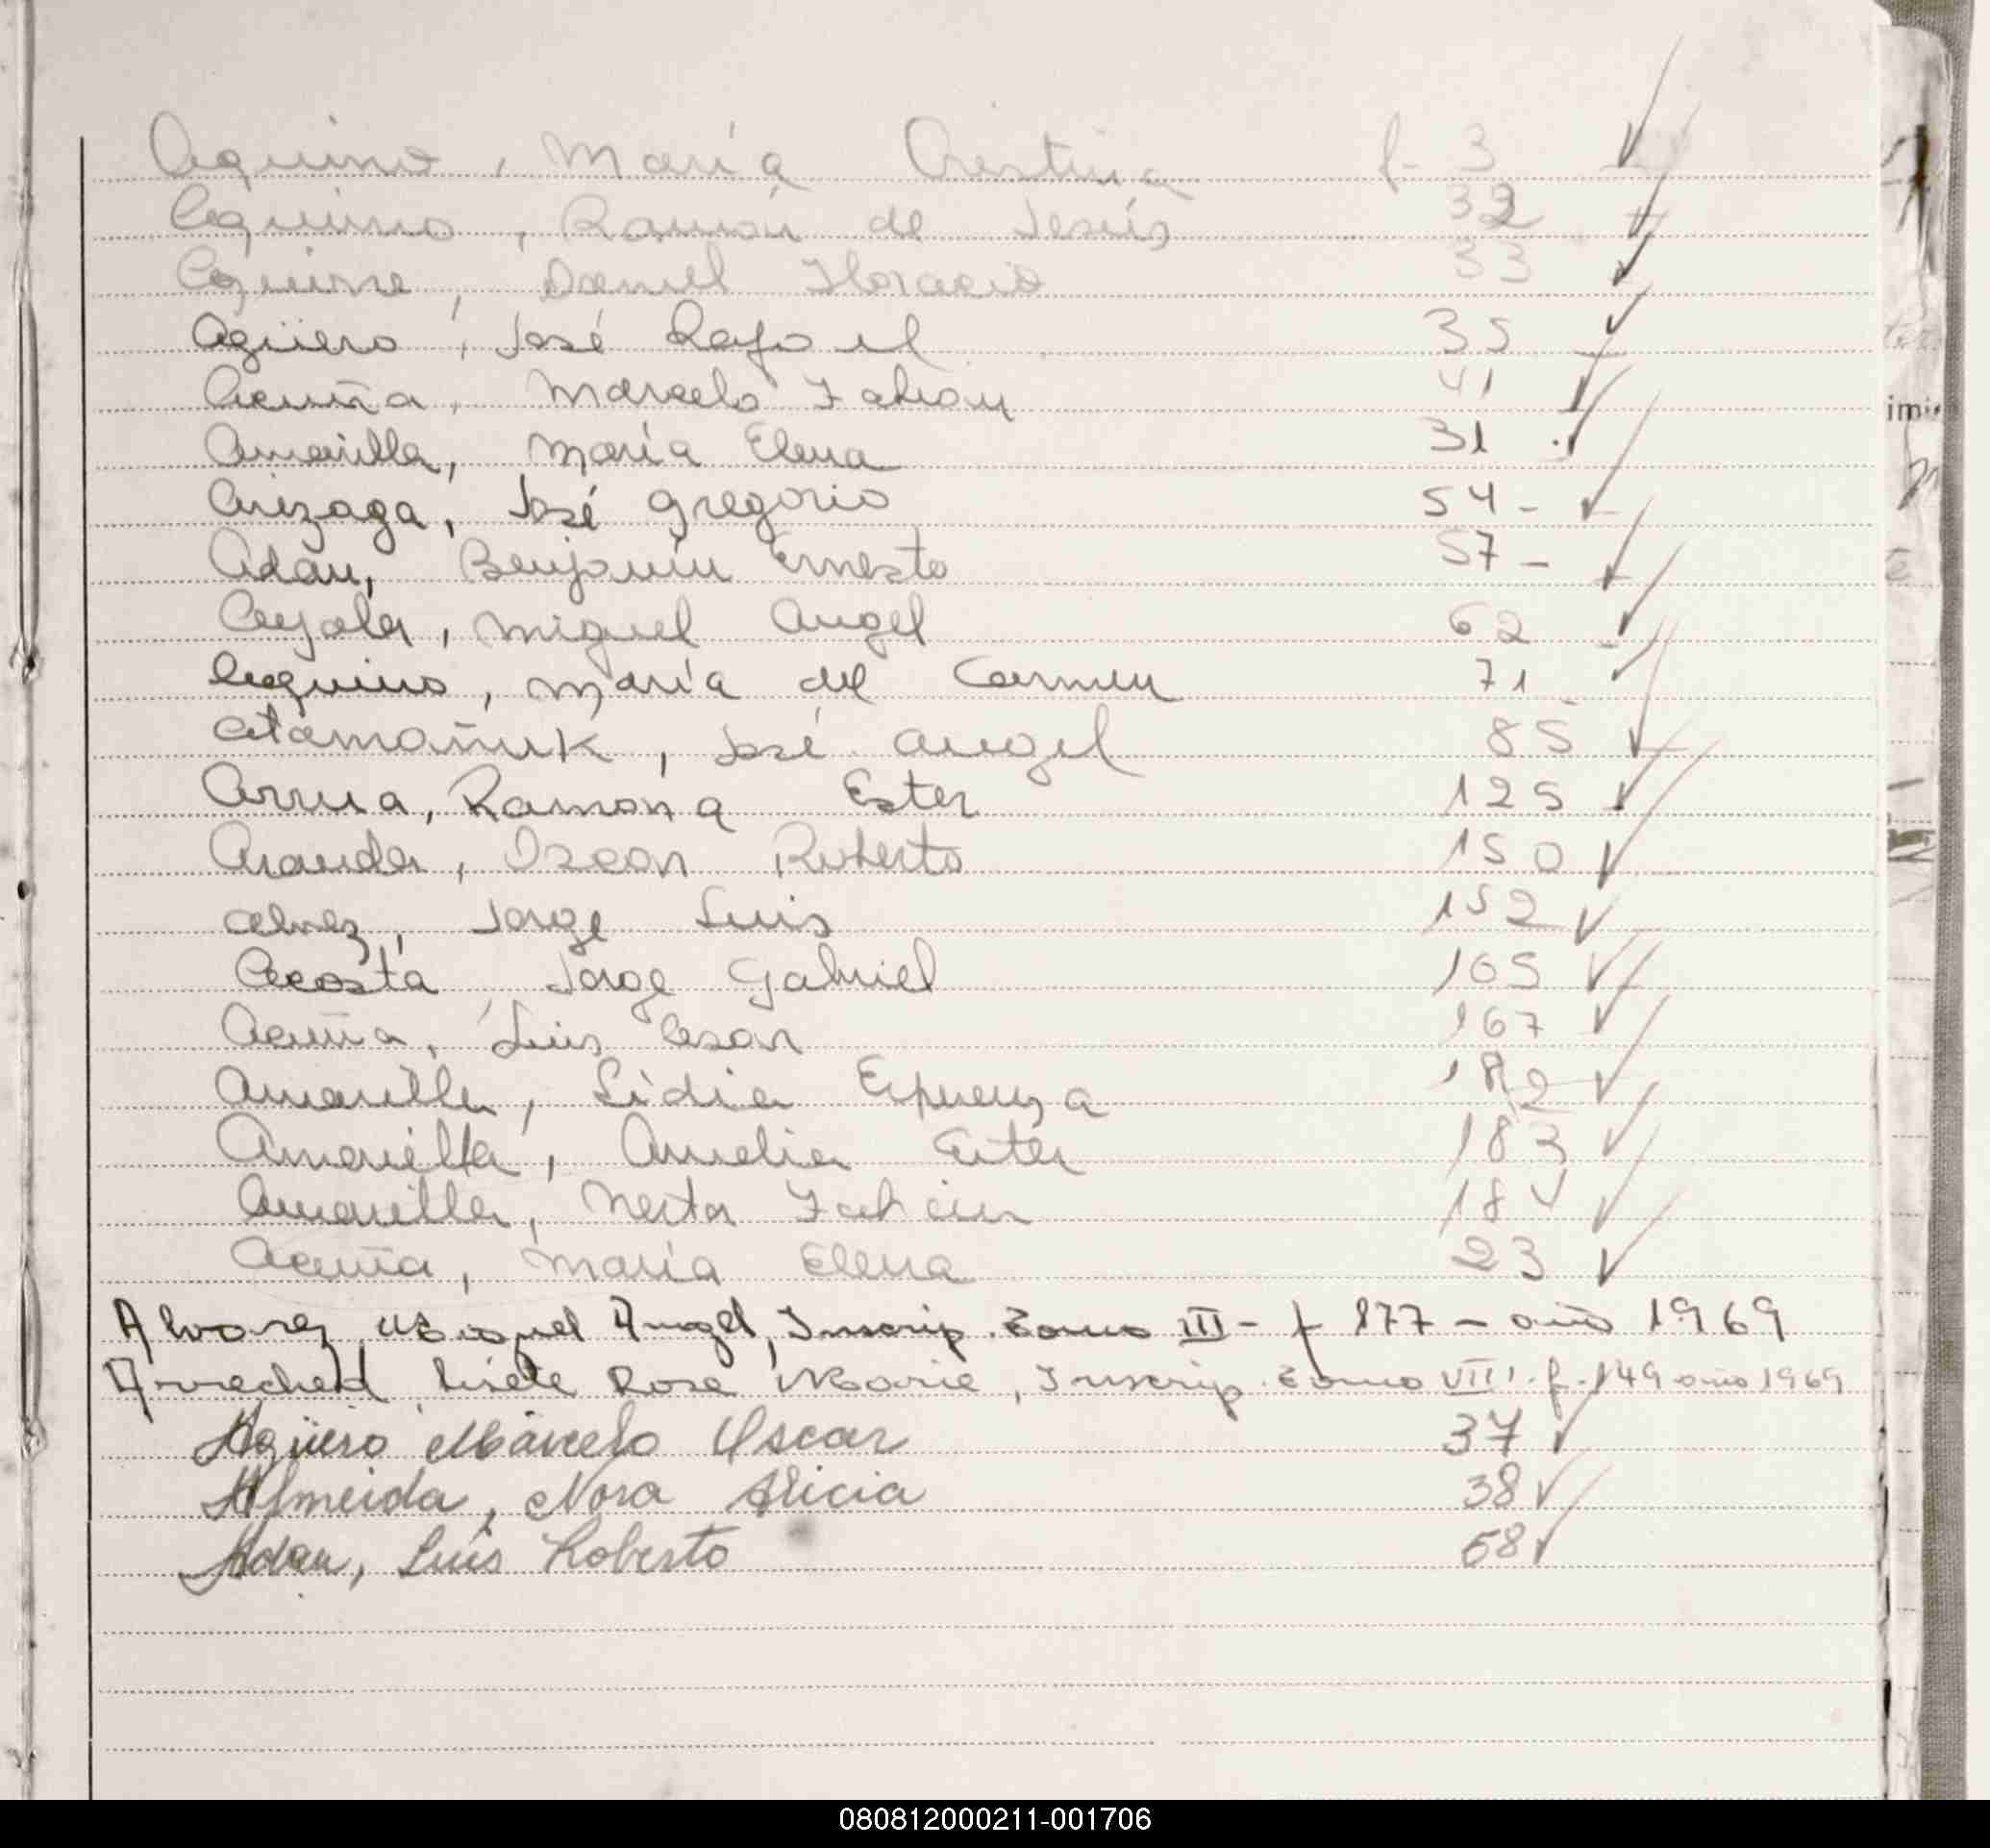 Aquino, María Cristina f- 3
Aquino, Ramón de Jesús 32
Aguirre, Daniel Horacio 33
Agüero, José Rafael 35
Acuña, Marcelo Fabian 41
Amarilla, María Elena 31
Arizaga, José Gregorio 54 -
Adan, Benjamin Ernesto 57 -
Ayala, Miguel Angel 62
Aquino, María del Carmen 71
Atamañuk, José Angel 85
Arrua, Ramona Ester 125
Aranda, Oscar Roberto 150
Alvez, Jorge Luis 152
Acosta, Jorge Gabriel 165
Acuña, Luis Cesar 167
Amarilla, Lidia Esperanza 182
Amarilla, Amelia Ester 183
Amarilla, Nestor Fabian 184
Acuña, María Elena 23
Alvarez, Miguel Angel, Inscrip. Tomo III - f 177 - año 1969
Lisele Rose Marie, Inscrip. Tomo VIII. f. 149 año 1969
Agüero Marcelo Oscar 37
Almeida, Nora Alicia 38
Adan, Luis Roberto 58
imi
080812000211-001706